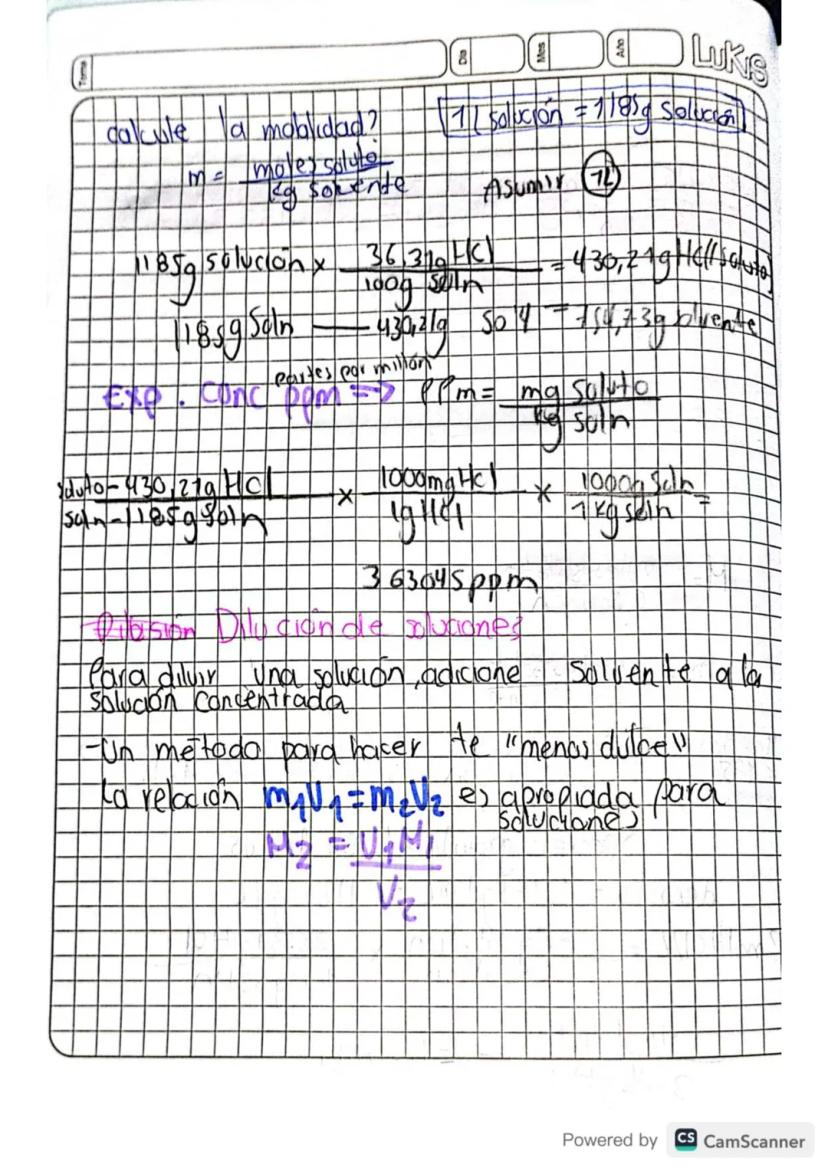 Tema
Día
Mes
Año
LUKIS
calcule la mobilidad? 1 L solución = 1185g Solución
m = moles soluto
kg solvente
Asumir 1L
1185g solución x 36,31g HCl = 430,21g HCl (soluto)
100g soln
1185g Soln — 430,21g = 754,73g solvente
partes por millón
Exp. Conc ppm => PPm = mg soluto
kg soln
soluto - 430,21g HCl x 1000mg HCl x 1000g Soln =
Soln - 1185g Soln 1g HCl 1 kg soln
363045 ppm
Dilusión Dilución de soluciones
Para diluir una solución, adicione Solvente a la
solución concentrada
- Un método para hacer te "menos dulce"
La relación m1V1 = m2V2 es apropiada para
soluciones
M2 = V1M1
V2
Powered by CS CamScanner